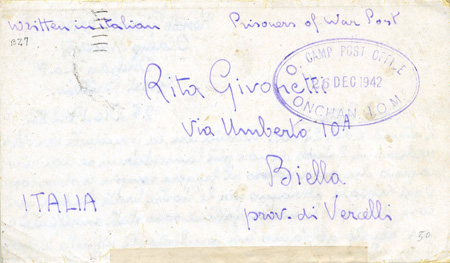 Written in Italian
Prisoners of War Post
BZ7
O. CAMP POST OFFICE
26 DEC 1942
ONCHAN I.O.M
Rita Givonetti
Via Umberto 10A
Biella
ITALIA
prov. di Vercelli
50